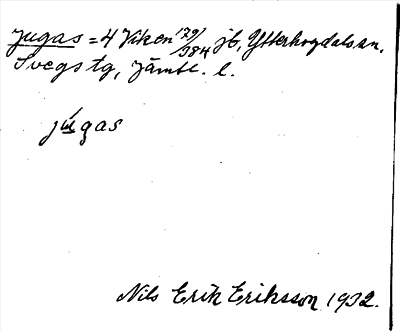 jugas = 4 Viken 179/384 jb, Ytterhogdals sn.
Svegs tg, Jämtl. l.
júgas
Nils Erik Eriksson 1932.